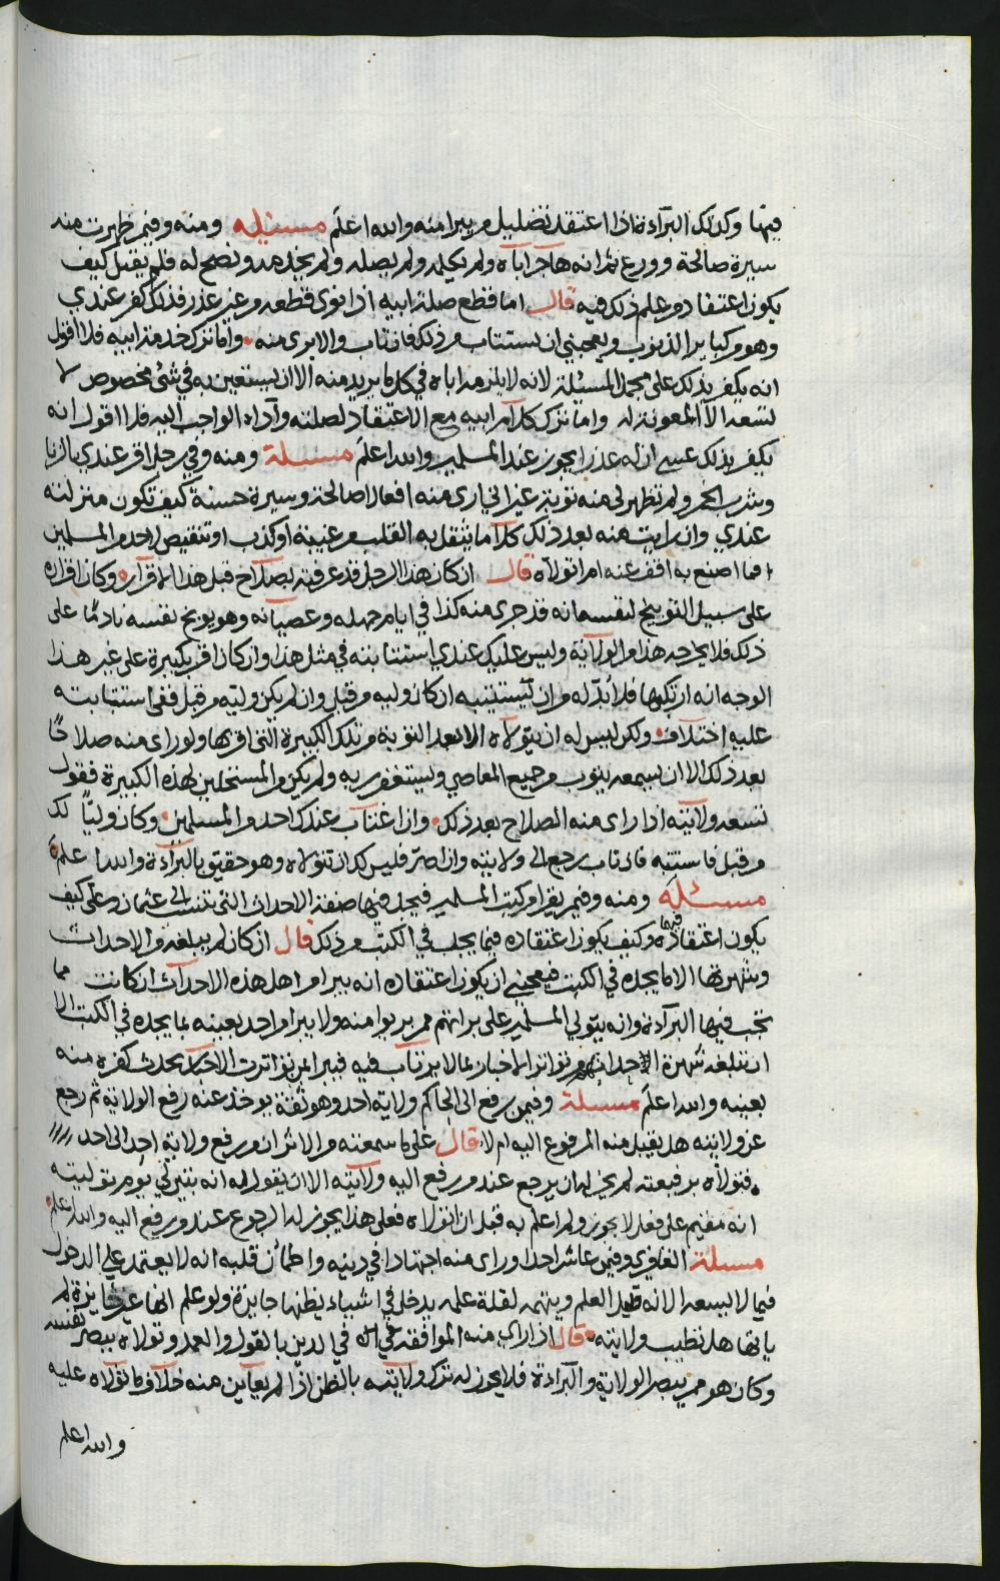 فيها وكذلك البرآءة اذا اعتقد تضليل من يبرا منه والله اعلم مسئله ومنه وفيمن ظهرت منه
سيرة صالحة وورع ثم انه هاجر اباه ولم يكلمه ولم يصله ولم يخدمه ونصح له فلم يقبل كيف
يكون اعتقاد من علم ذلك فيه قال اما قطع صلة ابيه اذا نوى قطعه من غير عذر فذلك كفر عندي
وهو من كباير الذنوب ويعجبني ان يستتاب من ذلك فان تاب والا بري منه واما ترك خدمة ابيه فلا اقول
انه يكفر بذلك على مجمل المسئلة لانه لا يلزمه اباه في كل ما يريد منه الا ان يستعين به في شئ مخصوص لا
تسعه الا المعونة له واما ترك كلام ابيه مع الاعتقاد لصلته وآداء الواجب اليه فلا اقول انه
يكفر بذلك عسى ان له عذرا يجوز عند المسلمين والله اعلم مسئلة ومنه وفي رجل اقر عندي بالزنا
وشرب الخمر ولم تظهر لي منه توبة غير اني ارى منه افعالا صالحة وسيرة حسنة كيف تكون منزلته
عندي وان رايت منه بعد ذلك كلاما يثقل به القلب من غيبة او كذب او تنقيص لاحد من المسلمين
فما اصنع به اقف عنه ام اتولاه قال ان كان هذا الرجل قد عرفته بصلاح قبل هذا الاقرار وكان اقراره
على سبيل التوبيخ لنفسه انه قد جرى منه كذا في ايام جهله وعصيانه وهو يوبخ نفسه نادما على
ذلك فلا يخرجه هذا من الولاية وليس عليك عندي استتابته في مثل هذا وان كان اقر بكبيرة على غير هذا
الوجه انه ارتكبها فلا بد له من ان يستتيبه ان كان وليه من قبل وان لم يكن وليه من قبل ففي استتابته
عليه اختلاف ولكن ليس له ان يتولاه الا بعد التوبة من تلك الكبيرة التي اقر بها ولو راى منه صلاحا
بعد ذلك الا ان يسمعه يتوب من جميع المعاصي ويستغفر ربه ولم يكن من المستحلين لهذه الكبيرة فقول
تسعه ولايته اذا راى منه الصلاح بعد ذلك وان اغتاب عندك احد من المسلمين وكان وليا لك
من قبل فاستتبه فان تاب رجع الى ولايته وان اصر فليس لك ان تتولاه وهو حقيق بالبرآءة والله اعلم
مسئلة ومنه وفيمن يقرا من كتب المسلمين فيجد فيها صفة الاحداث التي تنسب الى عثمان وعلي كيف
يكون اعتقاده فيها وكيف يكون اعتقاده فيما يجب في الكتب من ذلك قال ان كان لم يبلغه من الاحداث
وشهرتها الا ما يجده في الكتب فيعجبني ان يكون اعتقاده انه يبرا من اهل هذه الاحداث ان كانت مما
تجب فيها البرآءة وانه يتولى المسلمين على براتهم ممن بريوا منه ولا يبرا من احد بعينه بما يجده في الكتب الا
ان تبلغه شهرة الاحداث من تواتر الاخبار بما لا يرتاب فيه فيبرا ممن تواترت الاخبار بحدث كفره منه
بعينه والله اعلم مسئلة وفيمن رفع الى الحاكم ولاية احد وهو ثقة يوخذ عنه رفع الولاية ثم رجع
عن ولايته هل يقبل منه المرفوع اليه ام لا قال على ما سمعته من الاثر ان من رفع ولاية احد الى احد
فتولاه برفيعته لم يجز له ان يرجع عند من رفع اليه ولايته الا ان يقول له انه بتين لي يوم توليته
انه مقيم على فعل لا يجوز ولم اعلم به قبل ان اتولاه فعلى هذا يجوز له الرجوع عند من رفع اليه والله اعلم
مسئلة الغافري وفيمن عاشر احدا وراى منه اجتهادا في دينه واطمأن قلبه انه لا يعتمد على الدخول
فيما لا يسعه الا انه قليل العلم ويتهمه لقلة علمه يدخل في اشياء يظنها جايزة ولو علم انها غير جايزة لم
ياتها هل تطيب ولايته قال اذا راى منه الموافقة في الدين بالقول والعمل وتولاه ببصر نفسه
وكان هو ممن يبصر الولاية والبرآءة فلا يجوز له ترك ولايته بالظن اذا لم يعاين منه خلاف ما تولاه عليه
والله اعلم